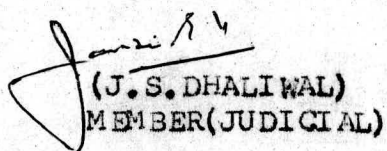 (J.S.DHALIWAL)
MEMBER(JUDICIAL)